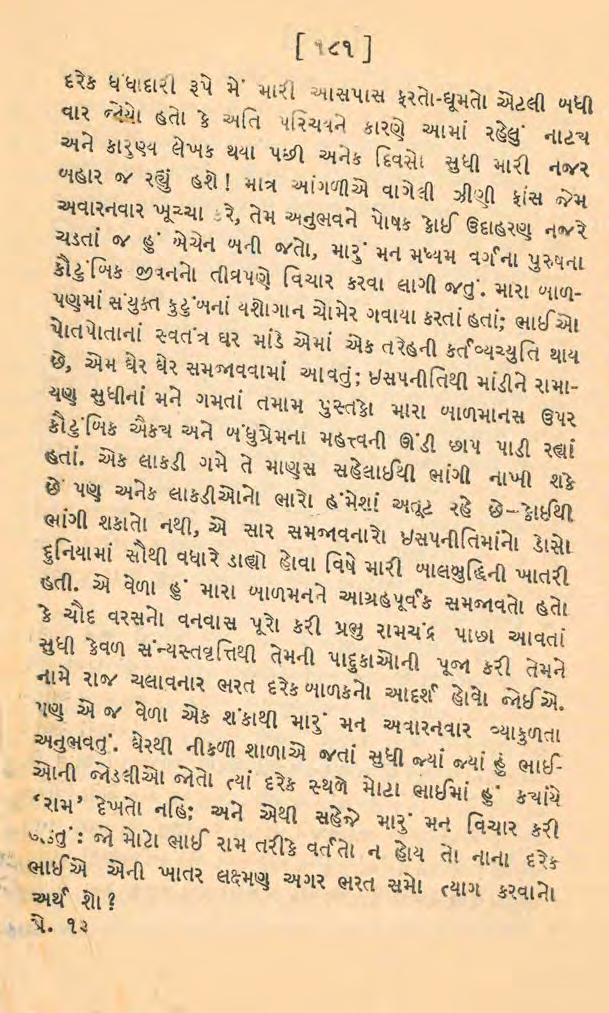 [ ૧૮૧ ]
દરેક ધંધાદારી રૂપે મેં મારી આસપાસ ફરતો-ઘૂમતો એટલી બધી
વાર જોયો હતો કે અતિ પરિચયને કારણે આમાં રહેલું નાટ્ય
અને કારુણ્ય લેખક થયા પછી અનેક દિવસો સુધી મારી નજર
બહાર જ રહ્યું હશે! માત્ર આંગળીએ વાગેલી ઝીણી ફાંસ જેમ
અવારનવાર ખૂચ્યા કરે, તેમ અનુભવને પોષક કોઈ ઉદાહરણ નજરે
ચડતાં જ હું બેચેન બની જતો, મારું મન મધ્યમ વર્ગના પુરુષના
કૌટુંબિક જીવનનો તીવ્રપણે વિચાર કરવા લાગી જતું. મારા બાળ-
પણમાં સંયુક્ત કુટુંબનાં યશોગાન ચોમેર ગવાયા કરતાં હતાં; ભાઈઓ
પોતપોતાનાં સ્વતંત્ર ઘર માંડે એમાં એક તરેહની કર્તવ્યચ્યુતિ થાય
છે, એમ ઘેર ઘેર સમજાવવામાં આવતું; ઇસપનીતિથી માંડીને રામા-
યણ સુધીનાં મને ગમતાં તમામ પુસ્તકો મારા બાળમાનસ ઉપર
કૌટુંબિક ઐક્ય અને બંધુપ્રેમના મહત્ત્વની ઊંડી છાપ પાડી રહ્યાં
હતાં. એક લાકડી ગમે તે માણસ સહેલાઈથી ભાંગી નાખી શકે
છે પણ અનેક લાકડીઓનો ભારો હંમેશાં અતૂટ રહે છે–કોઈથી
ભાંગી શકાતો નથી, એ સાર સમજાવનારો ઇસપનીતિમાંનો ડોસો
દુનિયામાં સૌથી વધારે ડાહ્યો હોવા વિષે મારી બાલબુદ્ધિની ખાતરી
હતી. એ વેળા હું મારા બાળમનને આગ્રહપૂર્વક સમજાવતો હતો
કે ચૌદ વરસનો વનવાસ પૂરો કરી પ્રભુ રામચંદ્ર પાછા આવતાં
સુધી કેવળ સંન્યસ્તવૃત્તિથી તેમની પાદુકાઓની પૂજા કરી તેમને
નામે રાજ ચલાવનાર ભરત દરેક બાળકનો આદર્શ હોવો જોઈએ.
પણ એ જ વેળા એક શંકાથી મારું મન અવારનવાર વ્યાકુળતા
અનુભવતું. ઘેરથી નીકળી શાળાએ જતાં સુધી જ્યાં જ્યાં હું ભાઈ-
ઓની જોડલીઓ જોતો ત્યાં દરેક સ્થળે મોટા ભાઈમાં હું ક્યાંયે
‘રામ’ દેખતો નહિ; અને એથી સહેજે મારું મન વિચાર કરી
ઊઠતું : જો મોટો ભાઈ રામ તરીકે વર્તતો ન હોય તો નાના દરેક
ભાઈએ એની ખાતર લક્ષ્મણ અગર ભરત સમો ત્યાગ કરવાનો
અર્થ શો?
પ્રે. ૧૩